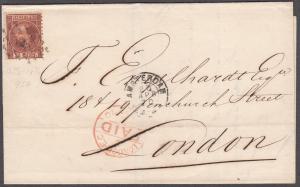 AMSTERDAM
F. Enthardt Esqre
18 & 19 Fenchurch Street
PAID
London